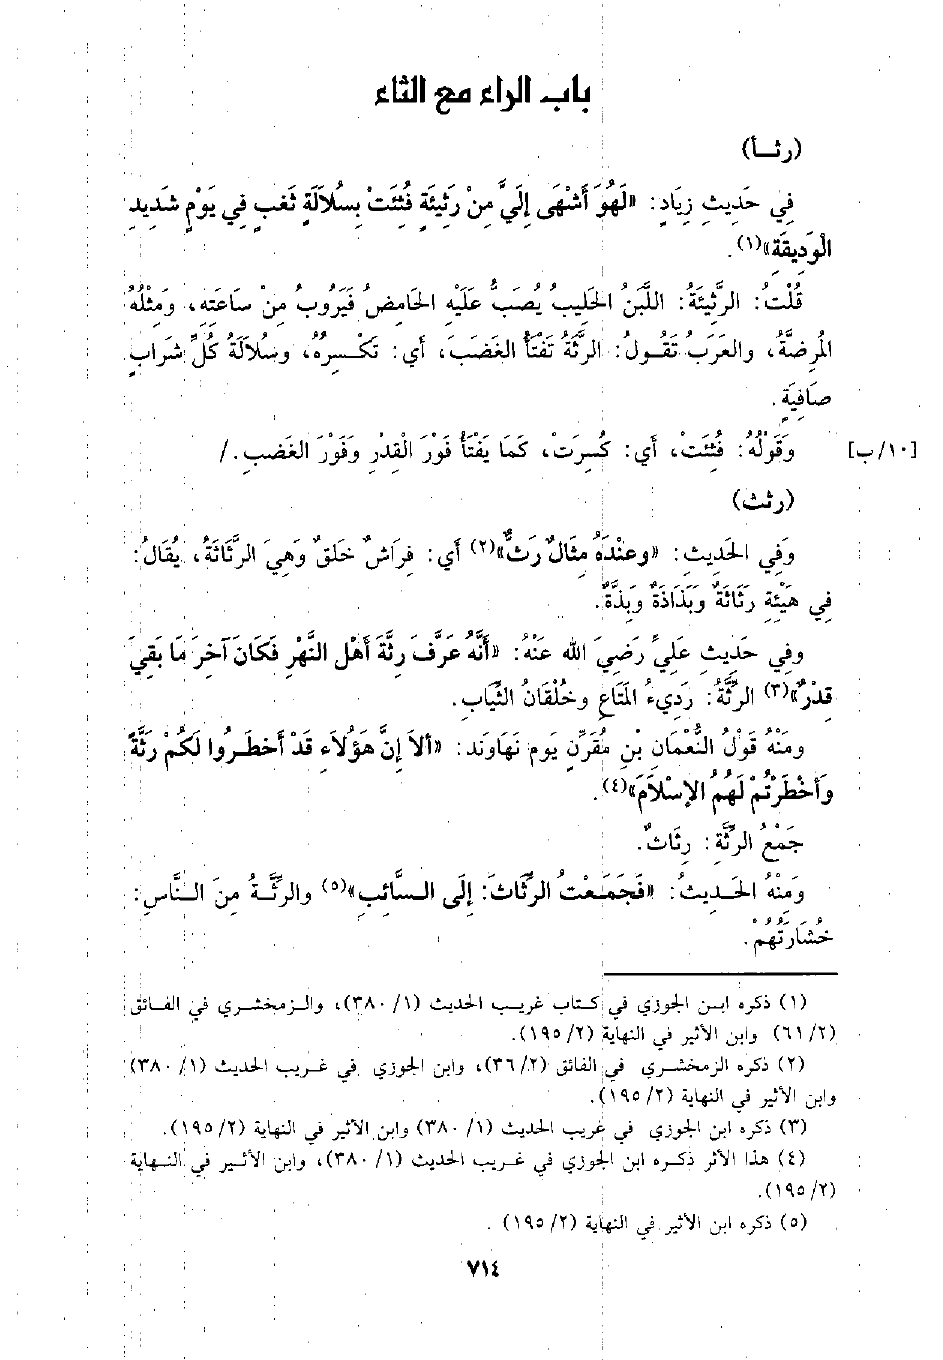 باب الراء مع الثاء
(رثـأ)
فِي حَدِيثِ زِيَادٍ: «لَهُوَ أَشْهَى إِلَيَّ مِنْ رَثِيئَةٍ فُثِئَتْ بِسُلاَلَةِ ثَغبٍ فِي يَوْمٍ شَدِيدِ
الْوَدِيقَةِ»(١).
قُلْتُ: الرَّثِيئَةُ: اللبَنُ الحَلِيبُ يُصَبُّ عَلَيْهِ الحَامِضُ فَيَرُوبُ مِنْ سَاعَتِهِ، وَمِثْلُهُ
المُرِضَّةُ، والعَرَبُ تَقُـولُ: الرَّثَةُ تَفْثَأُ الغَضَبَ، أي: تَكْسِرُهُ، وَسُلاَلَةُ كُلِّ شَرَابٍ
صَافِيَةٍ.
[١٠/ب] وَقَوْلُهُ: فُثِئَتْ، أَي: كُسِرَتْ، كَمَا يَفْثَأُ فَوْرَ الْقِدْرِ وَفَوْرَ الغَضبِ. /
(رثث)
وَفِي الحَدِيثِ: «وعِنْدَهُ مِثَالٌ رَثٌّ»(٢) أي: فِرَاشٌ خَلَقٌ وَهِيَ الرَّثَاثَةُ، يقَالُ:
فِي هَيْئَةِ رَثَاثَةٌ وَبَذَاذَةٌ وَبِذَّةٌ.
وفِي حَدِيثِ عَلِيٍّ رَضِيَ الله عَنْهُ: «أَنَّهُ عَرَّفَ رِثَّةَ أَهْلِ النَّهْرِ فَكَانَ آخِرَ مَا بَقِيَ
قِدْرٌ»(٣) الرِّثَّةُ: رَدِيءُ المَتَاعِ وخُلْقَانُ الثِّيَابِ.
ومَنْهُ قَوْلُ النُّعْمَانِ بْنِ مُقَرِّنٍ يَوم نَهَاوَند: «ألاَ إِنَّ هَؤُلاَءِ قَدْ أخطَـرُوا لَكُمْ رَثَّةً
وَأَخْطَرْتُمْ لَهُمُ الإسْلاَمَ»(٤).
جَمْعُ الرِّثَّةِ: رِثَاثٌ.
وَمِنْهُ الحَـدِيثُ: «فَجَمَعْتُ الرِّثَاثَ: إِلَى السَّائِبِ»(٥) والرِّثَّـةُ مِنَ النَّاسِ:
خُشَارَتُهُمْ.
(١) ذكره ابـن الجوزي في كـتاب غريب الحديث (١/ ٣٨٠)، والـزمخشري في الفـائق
(٢/ ٦١) وابن الأثير في النهاية (٢/ ١٩٥).
(٢) ذكره الزمخشـري في الفائق (٢/ ٣٦)، وابن الجوزي في غريب الحديث (١/ ٣٨٠)
وابن الأثير في النهاية (٢/ ١٩٥).
(٣) ذكره ابن الجوزي في غريب الحديث (١/ ٣٨٠) وابن الأثير في النهاية (٢/ ١٩٥).
(٤) هذا الأثر ذكـره ابن الجوزي في غـريب الحديث (١/ ٣٨٠)، وابن الأثـير في النـهاية
(٢/ ١٩٥).
(٥) ذكره ابن الأثير في النهاية (٢/ ١٩٥) .
٧١٤